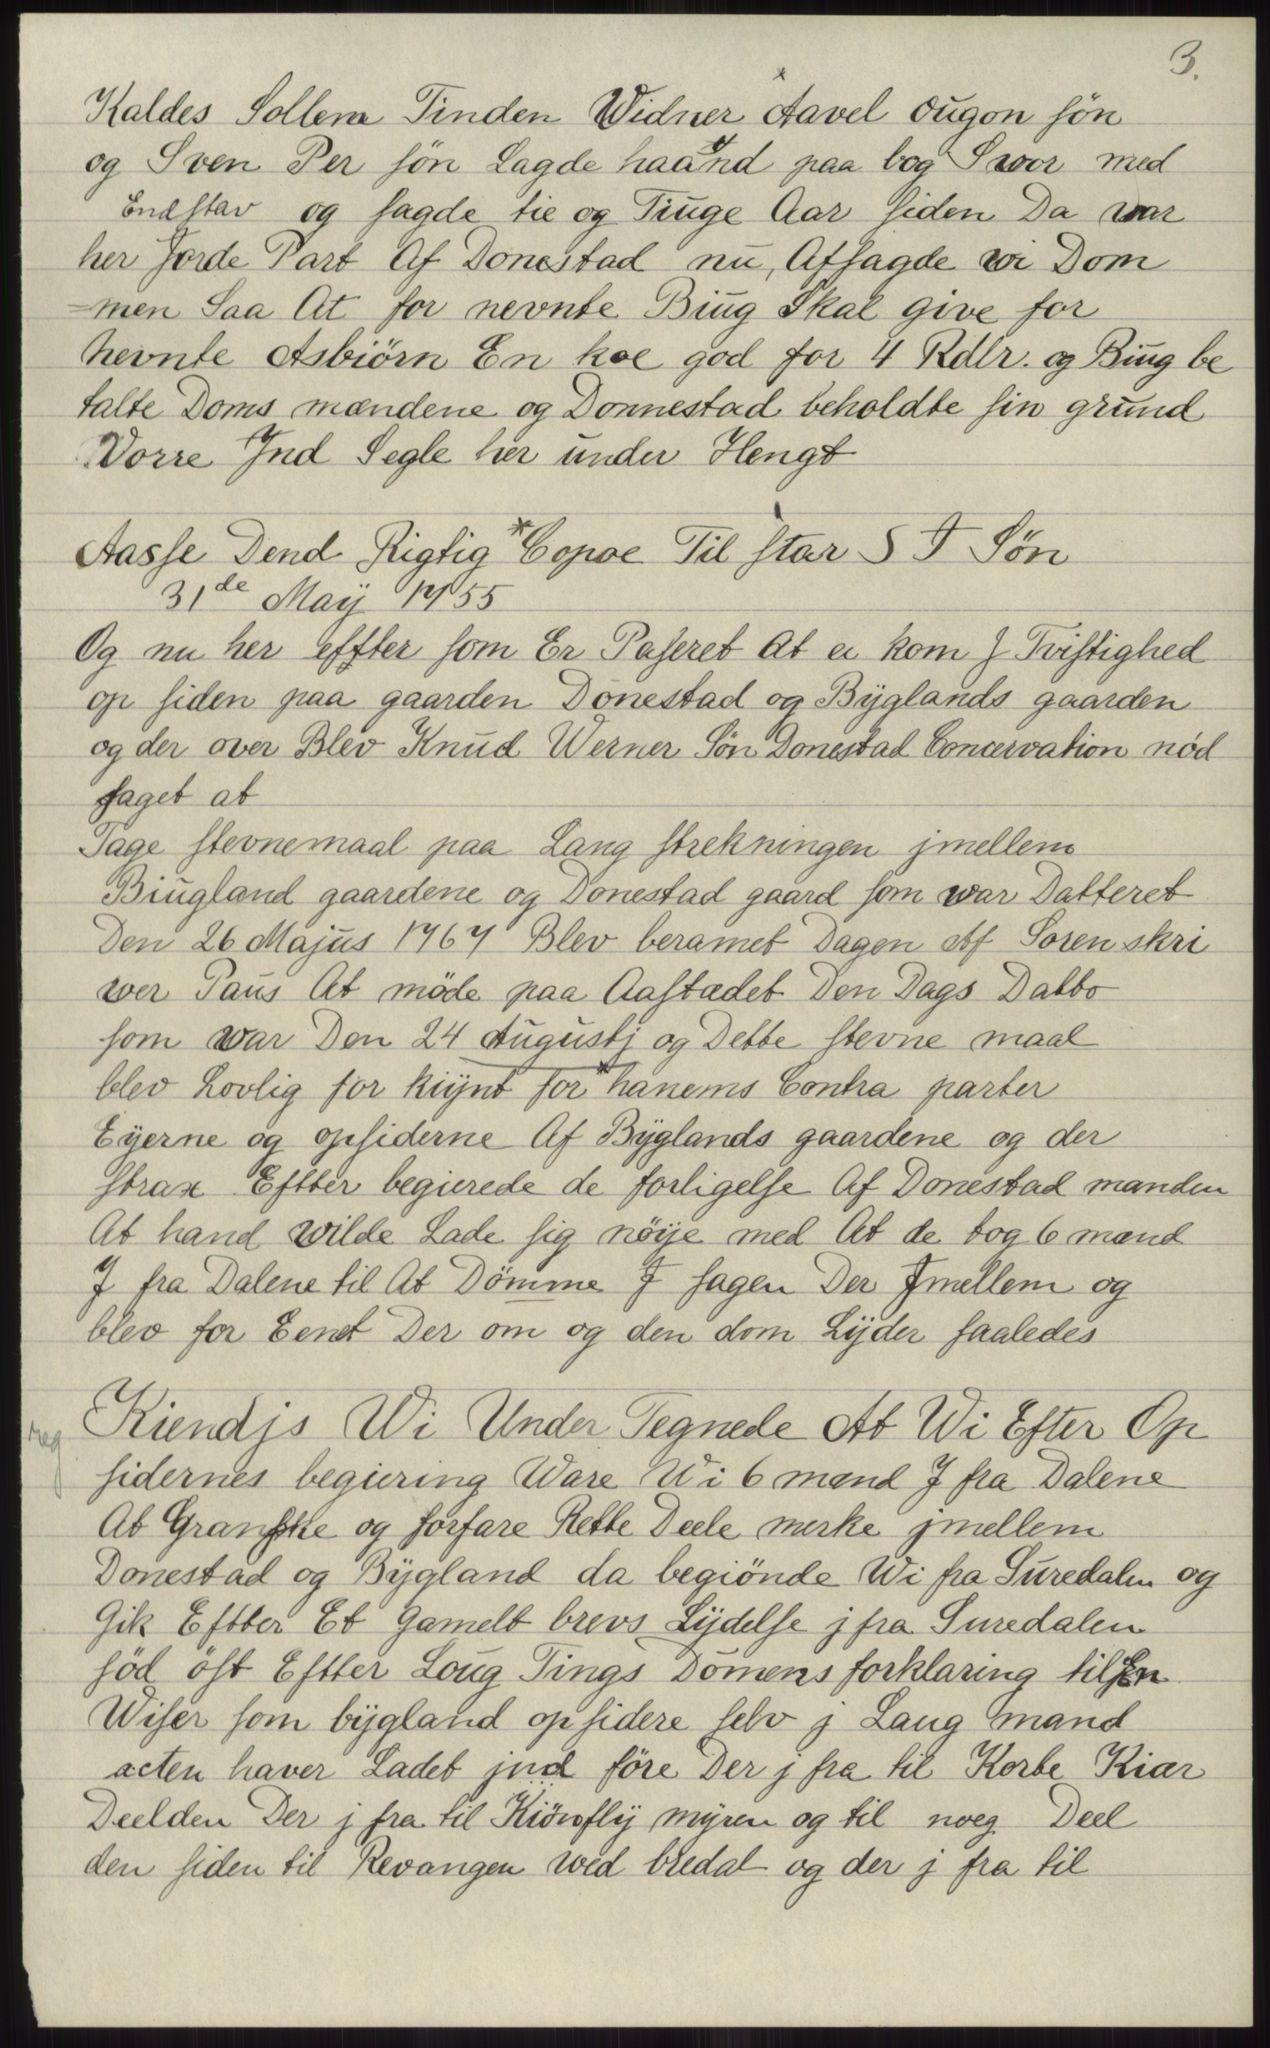 3.
Kaldes Sollem Tinden Widner Aavel ougon søn
og Sven Per søn Lagde haand paa bog Swor med
Endstav og sagde tie og Tiuge Aar siden Da war
her Jorde Part Af Donestad nu, Afsagde wi Dom
=men Saa At for nevnte Biug Skal give for
nevnte Asbiörn En koe god for 4 Rdlr. og Biug be
talte Doms mændene og Donnestad beholdte sin grund
Vorre Jnd Segle her under Hengt
Aasse Dend Rigtig * Copoe Til star S T Søn
31de Maÿ 1755
Og nu her effter som Er Paseret At ei kom J Tvistighed
op siden paa gaarden Donestad og Bÿglands gaarden
og der over Blev Knud Werner Søn Donestad Concervation nød
saget at
Tage stevnemaal paa Lang strekningen jmellem
Biugland gaardene og Donestad gaard som war Datteret
Den 26 Majus 1767 Blev beramet Dagen Af Soren skri
wer Paus At møde paa Aastædet Den Dags Datto
som war Den 24 Augustj og Dette stevne maal
blev Lovlig for kiÿnt for * hanems Contra parter
Eÿerne og opsiderne Af Bÿglands gaardene og der
strax Eftter begierede de forligelse Af Donestad manden
At hand wilde Lade sig nöÿe med At de tog 6 mænd
J fra Dalene til At Dömme J sagen Der Jmellem og
blev for Eenet Der om og den dom Lÿder saaledes
reg
Kiendjs Wi Under Tegnede At Wi Efter Op
sidernes begiering Ware Wi 6 mænd J fra Dalene
At Granske og forfare Rette Deele merke jmellem
Donestad og Bÿgland da begiönde Wi fra Suredalen og
Gik Eftter Et Gamelt brevs Lÿdelse j fra Suredalen
söd öst Eftter Loug Tings Domens forklaring til En
Wiser som bÿgland opsidere selv j Laug mand
acten haver Ladet jnd före Der j fra til Korte Kiær
Deelden Der j fra til Kiönflÿ mÿren og til noeg Deel
den siden til Revangen wed bredal og der j fra til